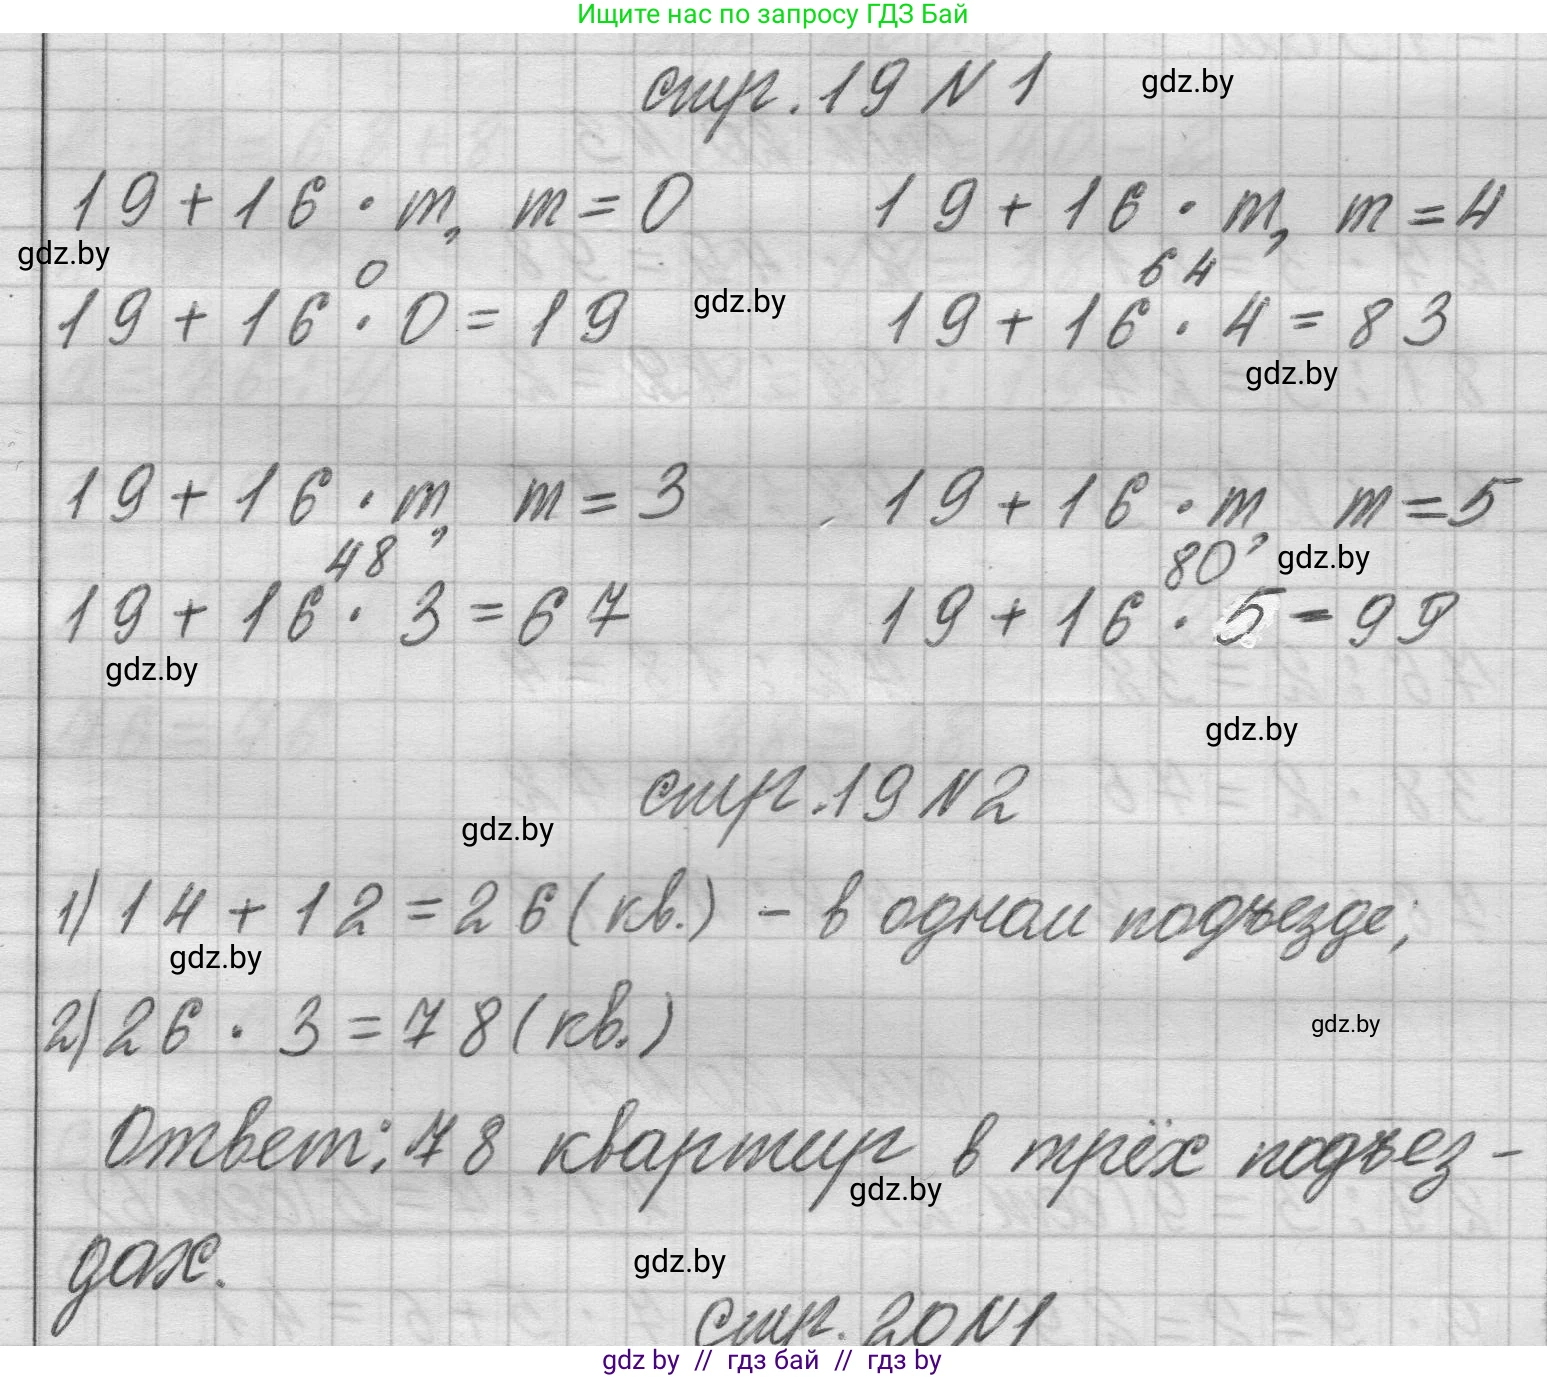 Ищите нас по запросу ГДЗ Бай
стр. 19 N 1 gdz.by
19 + 16 · m, m = 0 19 + 16 · m, m = 4
gdz.by 0 64
19 + 16 · 0 = 19 gdz.by 19 + 16 · 4 = 83
gdz.by
19 + 16 · m, m = 3 19 + 16 · m, m = 5
48 80 gdz.by
19 + 16 · 3 = 67 19 + 16 · 5 = 99
gdz.by
gdz.by
стр. 19 N 2
gdz.by
1) 14 + 12 = 26 (кв.) - в одном подъезде;
gdz.by
2) 26 · 3 = 78 (кв.) gdz.by
Ответ: 78 квартир в трёх подъез-
gdz.by
дах. gdz.by
стр. 20 N1
gdz by // гдз бай // гдз by